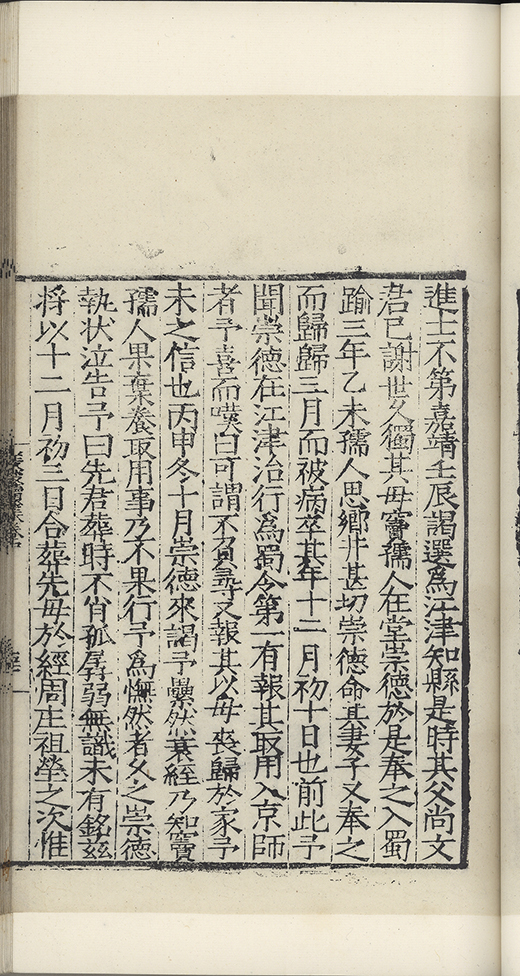 進士不第嘉靖壬辰謁選爲江津知縣是時其父尚文
君已謝世久獨其母竇孺人在堂崇德於是奉之入蜀
踰三年乙未孺人思鄉井甚切崇德命其妻子又奉之
而歸歸三月而被病卒其年十二月初十日也前此予
聞崇德在江津治行爲蜀令第一有報其取用入京師
者予喜而嘆曰可謂不負尋又報其以母喪歸於家予
未之信也丙申冬十月崇德來謁予纍然衰絰乃知竇
孺人果棄養取用事乃不果行予爲憮然者久之崇德
執狀泣告予曰先君葬時不肖孤孱弱無識未有銘兹
将以十二月初三日合葬先母於經周庄祖塋之次惟